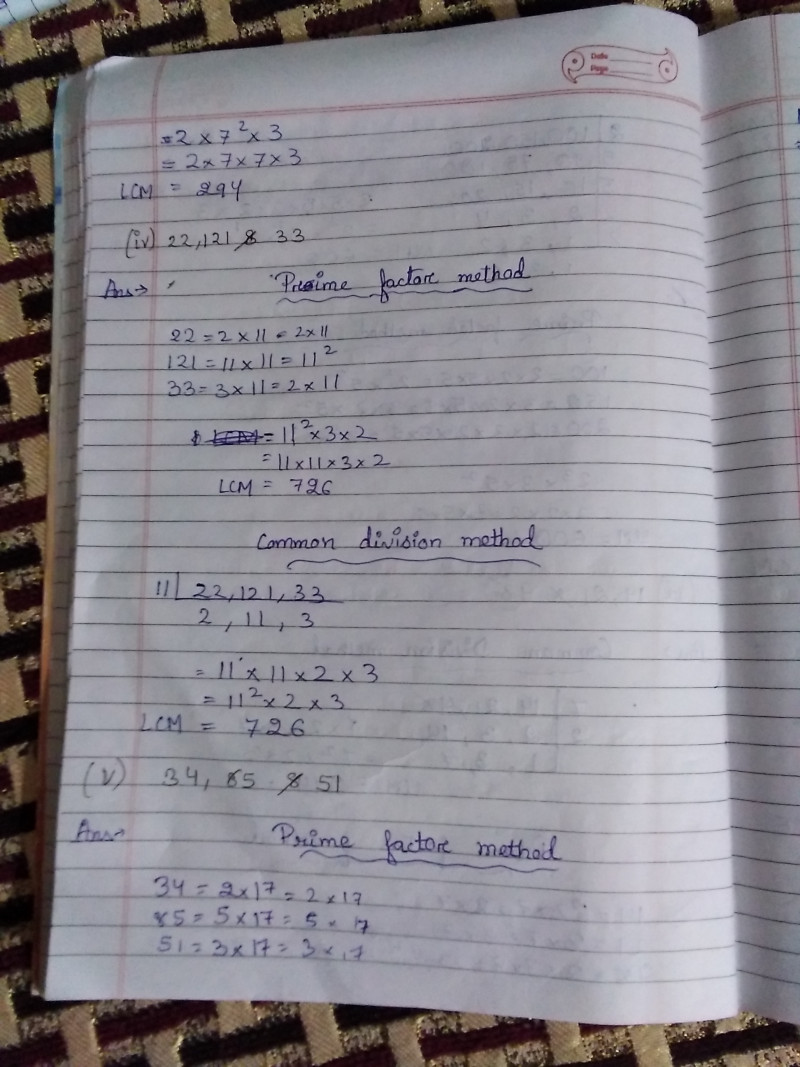 Date
Page
= 2 × 7² × 3
= 2 × 7 × 7 × 3
LCM = 294
(iv) 22, 121 & 33
Ans→ Prime factore method
22 = 2 × 11 = 2 × 11
121 = 11 × 11 = 11²
33 = 3 × 11 = 2 × 11
= 11² × 3 × 2
= 11 × 11 × 3 × 2
LCM = 726
Common division method
11 | 22, 121, 33
2, 11, 3
= 11 × 11 × 2 × 3
= 11² × 2 × 3
LCM = 726
(V) 34, 85 & 51
Ans→ Prime factore method
34 = 2 × 17 = 2 × 17
85 = 5 × 17 = 5 × 17
51 = 3 × 17 = 3 × 17